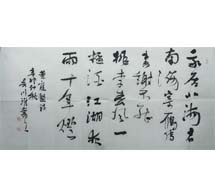 我居北海君
南海寄雁傳
書謝不能
桃李春風一
杯酒江湖夜
雨十年燈
黄庭堅詩